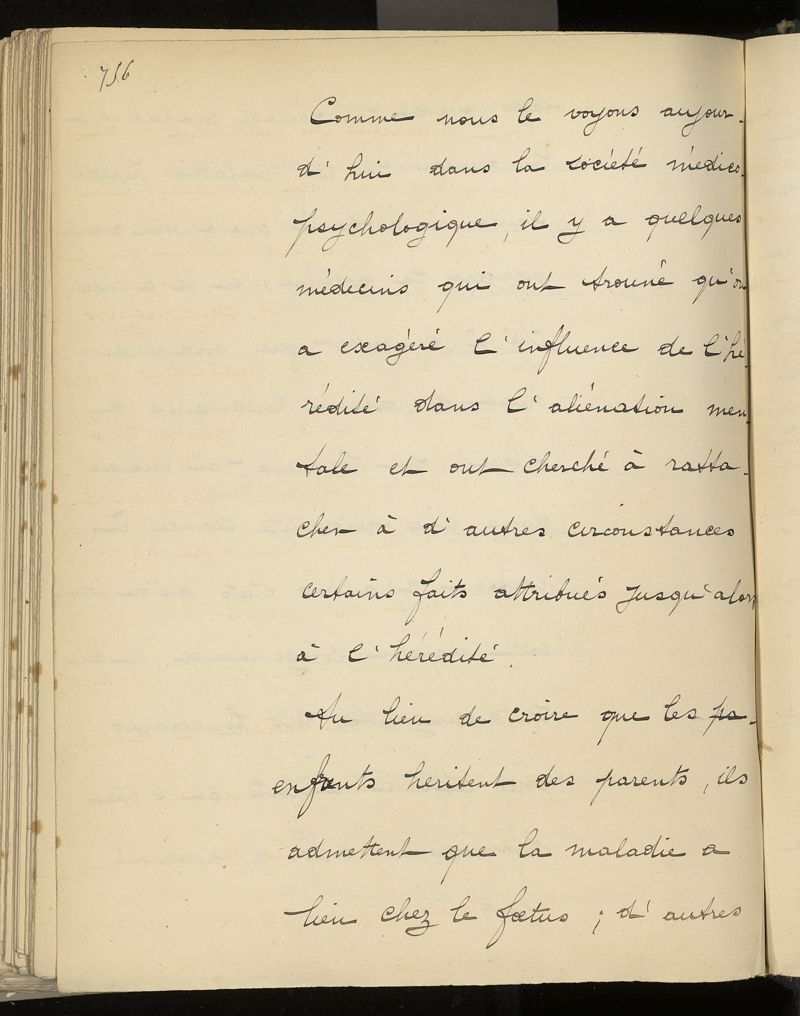 756
Comme nous le voyons aujour-
d'hui dans la société médico-
psychologique, il y a quelques
médecins qui ont trouvé qu'on
a exagéré l'influence de l'hé-
rédité dans l'aliénation men-
tale et ont cherché à ratta-
cher à d'autres circonstances
certains faits attribués jusqu'alors
à l'hérédité.
Au lieu de croire que les pa-
enfants heritent des parents, ils
admettent que la maladie a
lieu chez le fœtus ; d'autres